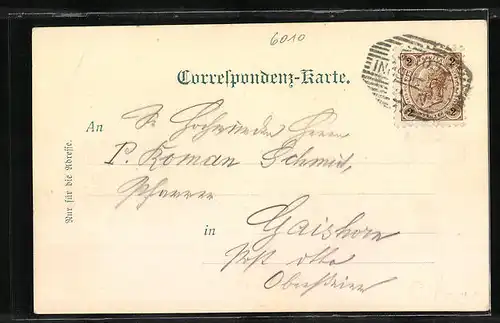 6010
2 2
Correspondenz-Karte.
An Sr Hochwürden Herrn
P. Roman Schmid,
Pfarrer
in Gaishorn
Post
Obersteier
Nur für die Adresse.